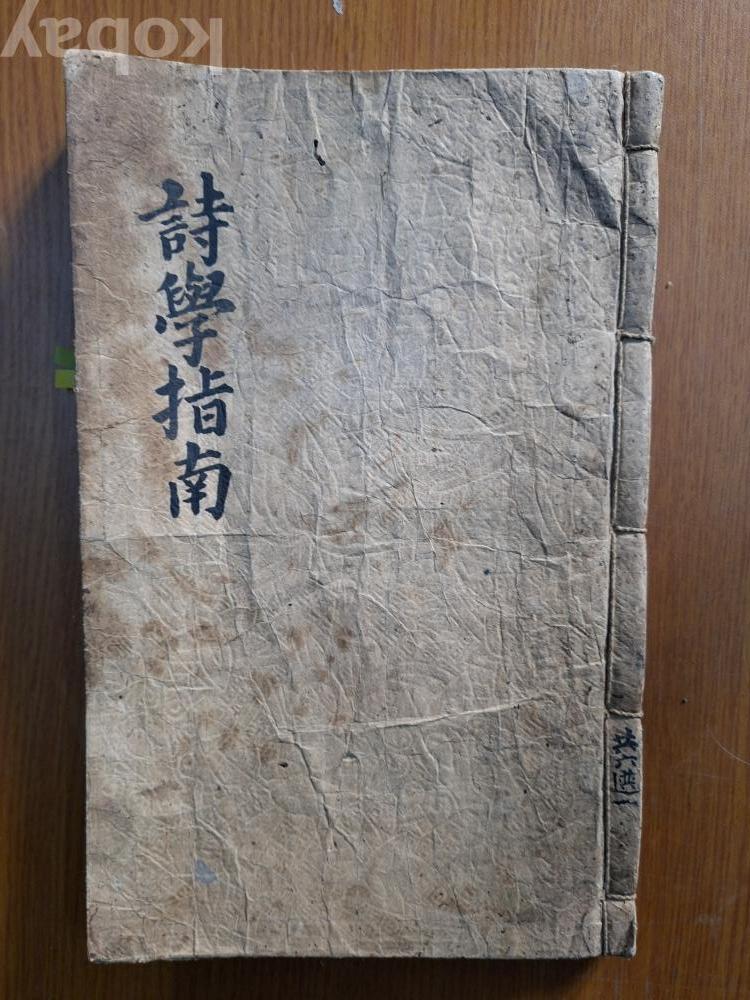 kobay
詩學指南
共六